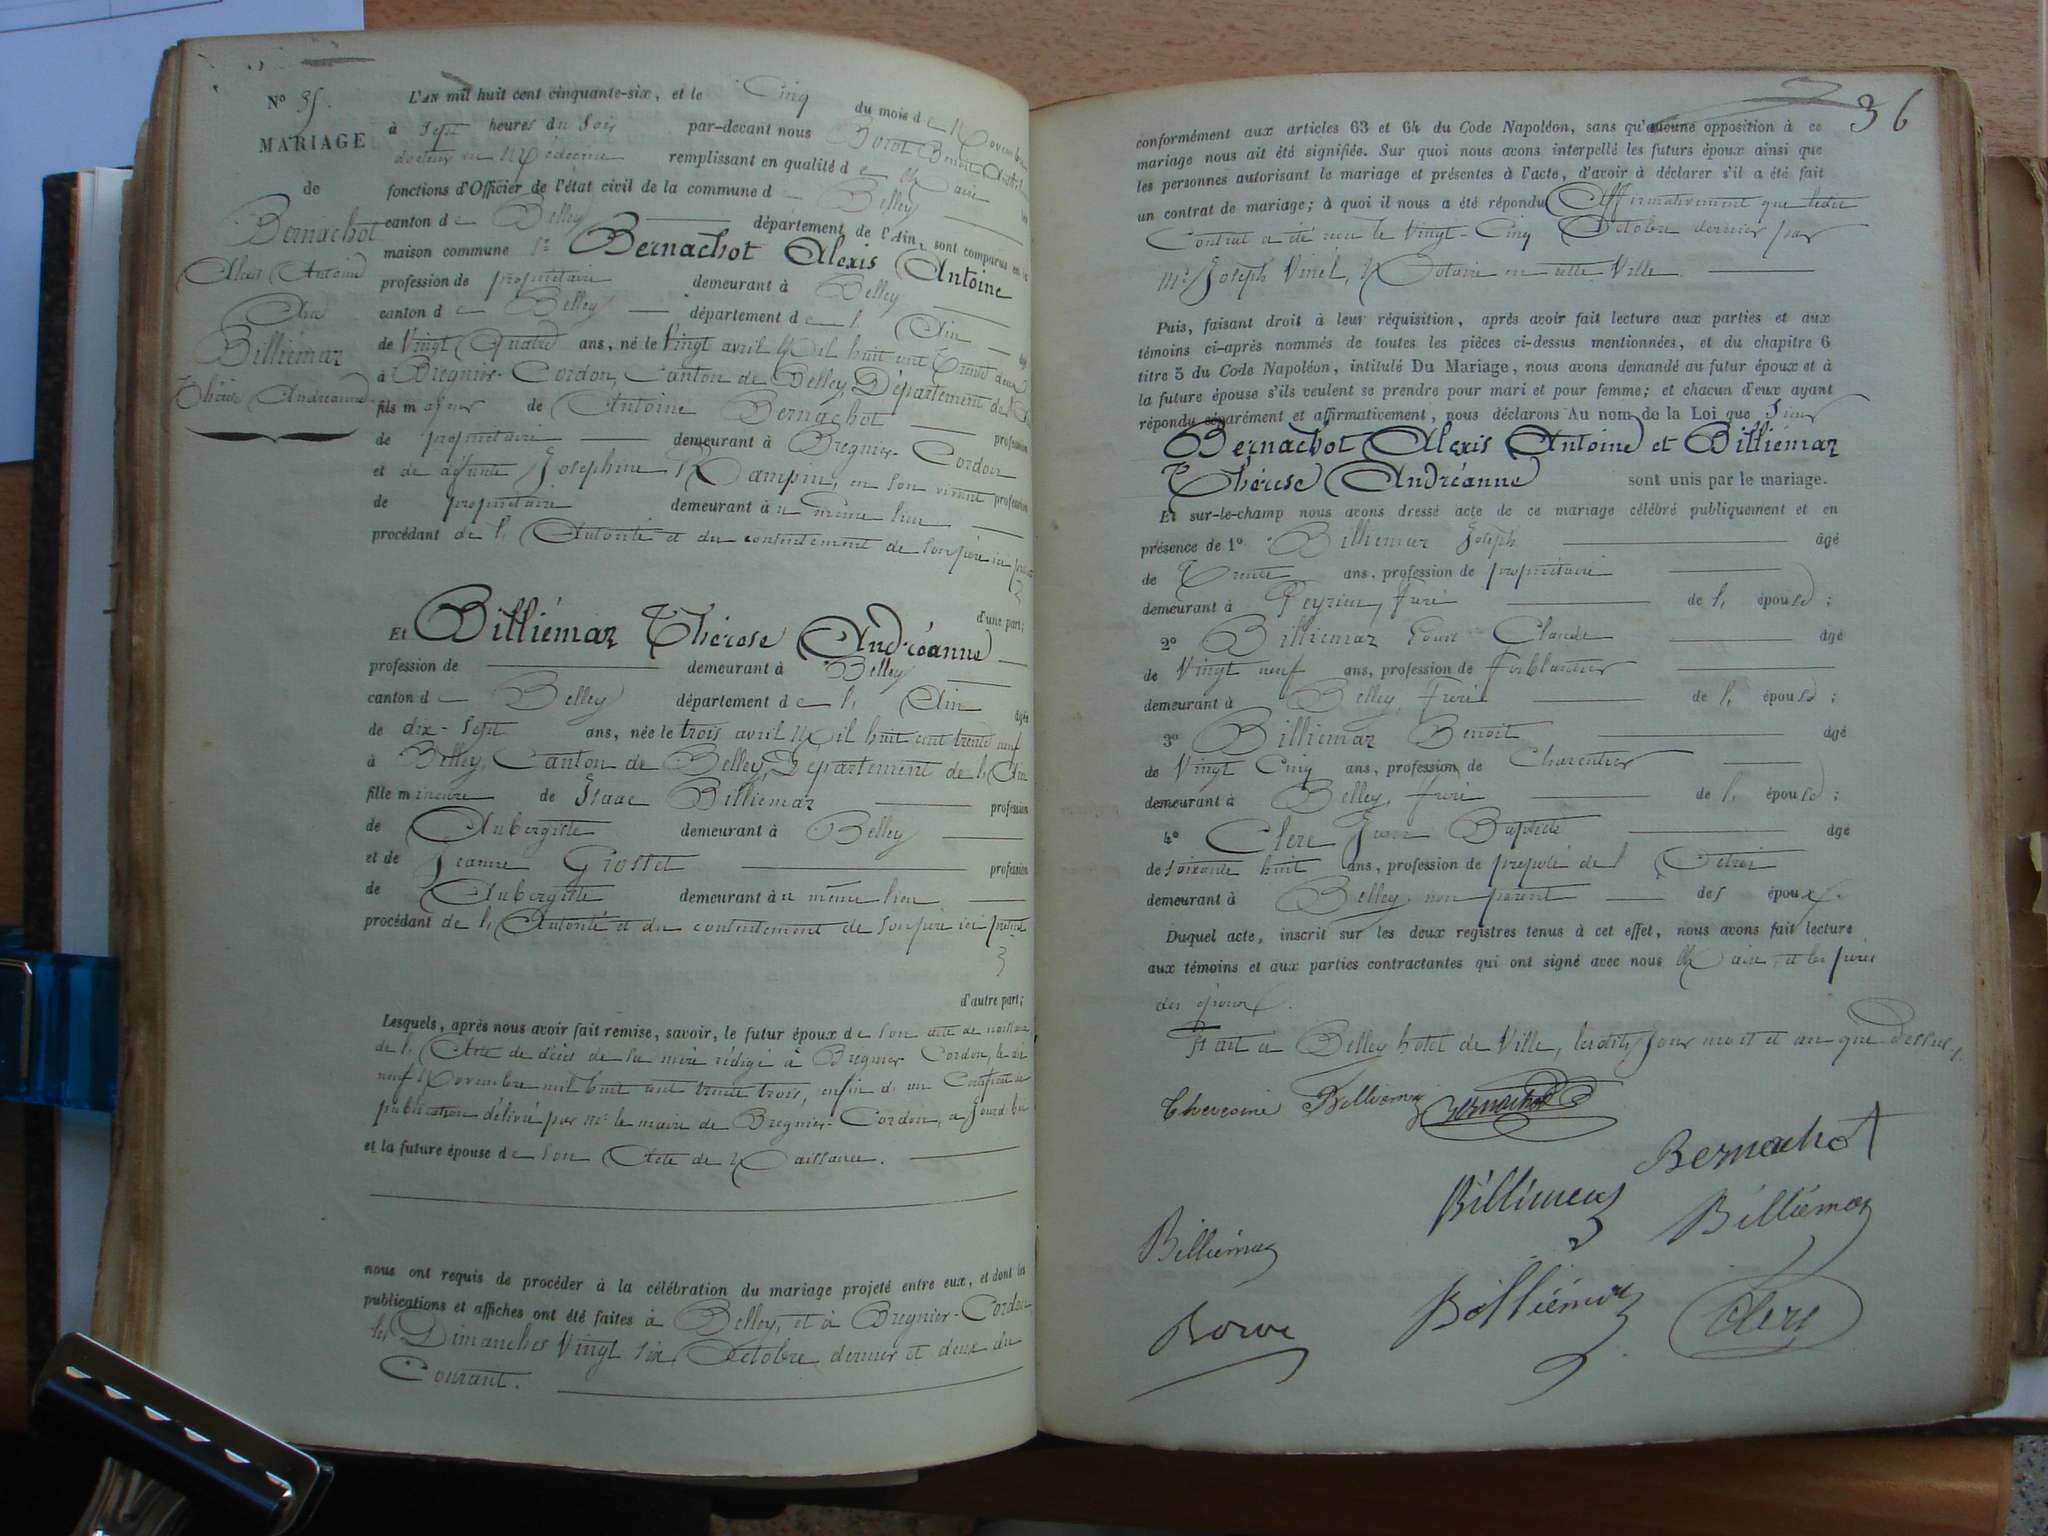 N° 35.
MARIAGE
de
Bernachot
Alexis Antoine
Billiémaz
Thérèse Andréanne
L'AN mil huit cent cinquante-six, et le Cinq du mois de Novembre
à Sept heures du Soir par-devant nous
docteur en Médecine remplissant en qualité de Maire les
fonctions d'Officier de l'état civil de la commune de Belley
canton de Belley département de l'Ain, sont comparus en la
maison commune Sr Bernachot Alexis Antoine
profession de propriétaire demeurant à Belley
canton de Belley département de l'Ain âgé
de Vingt Quatre ans, né le Vingt avril Mil huit cent Trente deux
à Bregnier-Cordon, Canton de Belley, Département de l'Ain
fils majeur de Antoine Bernachot profession
de propriétaire demeurant à Bregnier-Cordon
et de défunte Joséphine en son vivant profession
de propriétaire demeurant au même lieu
procédant de l'Autorité et du consentement de son père ici présent
d'une part;
Et Billiémaz Thérèse Andréanne
profession de demeurant à Belley
canton de Belley département de l'Ain âgée
de dix-sept ans, née le trois avril Mil huit cent trente neuf
à Belley, Canton de Belley, Département de l'Ain
fille mineure de Isaac Billiemaz profession
de Aubergiste demeurant à Belley
et de Jeanne Grosset profession
de Aubergiste demeurant au même lieu
procédant de l'Autorité et du consentement de son père ici présent
d'autre part;
Lesquels, après nous avoir fait remise, savoir, le futur époux de son acte de naissance
de l'Acte de décès de sa mère rédigé à Bregnier Cordon, le dix
neuf Novembre mil huit cent trente trois, enfin d'un Certificat de
publication délivré par Mr le maire de Bregnier-Cordon,
et la future épouse de son Acte de Naissance.
nous ont requis de procéder à la célébration du mariage projeté entre eux, et dont les
publications et affiches ont été faites à Belley, et à Bregnier-Cordon
les Dimanches Vingt six Octobre dernier et deux du
Courant.
36
conformément aux articles 63 et 64 du Code Napoléon, sans qu'aucune opposition à ce
mariage nous ait été signifiée. Sur quoi nous avons interpellé les futurs époux ainsi que
les personnes autorisant le mariage et présentes à l'acte, d'avoir à déclarer s'il a été fait
un contrat de mariage; à quoi il nous a été répondu Affirmativement que ledit
Contrat a été reçu le Vingt-Cinq Octobre dernier par
Me Joseph Vinel, Notaire en cette Ville
Puis, faisant droit à leur réquisition, après avoir fait lecture aux parties et aux
témoins ci-après nommés de toutes les pièces ci-dessus mentionnées, et du chapitre 6
titre 5 du Code Napoléon, intitulé Du Mariage, nous avons demandé au futur époux et à
la future épouse s'ils veulent se prendre pour mari et pour femme; et chacun d'eux ayant
répondu séparément et affirmativement, nous déclarons Au nom de la Loi que Sieur
Bernachot Alexis Antoine et Billiémaz
Thérèse Andréanne sont unis par le mariage.
Et sur-le-champ nous avons dressé acte de ce mariage célébré publiquement et en
présence de 1° Billiemaz Joseph âgé
de Trente ans, profession de propriétaire
demeurant à Peyrieu, frère de l'épouse;
2° Billiemaz Claude âgé
de Vingt neuf ans, profession de ferblantier
demeurant à Belley, frère de l'épouse;
3° Billiemaz Benoit âgé
de Vingt Cinq ans, profession de Charcutier
demeurant à Belley, frère de l'épouse;
4° Clerc Jean Baptiste âgé
de soixante huit ans, profession de préposé de l'Octroi
demeurant à Belley non parent des époux.
Duquel acte, inscrit sur les deux registres tenus à cet effet, nous avons fait lecture
aux témoins et aux parties contractantes qui ont signé avec nous Maire, et les pères
des époux.
Fait à Belley hotel de Ville, lesdits jour mois et an que Dessus.
Billiemaz Bernachot
Bernachot
Billiemaz Billiémaz
Billiémaz
Billiémaz Clerc